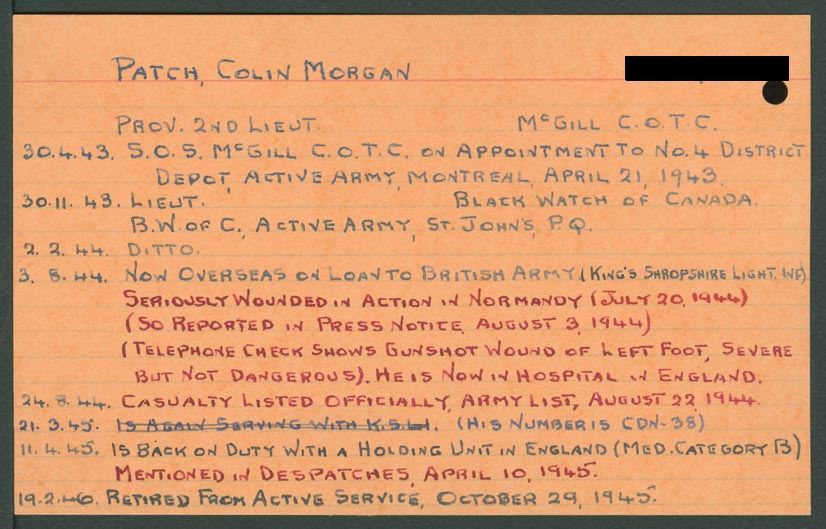 PATCH, COLIN MORGAN
PROV. 2ND LIEUT. McGILL C.O.T.C.
30.4.43. S.O.S. McGILL C.O.T.C. ON APPOINTMENT TO No.4 DISTRICT
DEPOT, ACTIVE ARMY, MONTREAL, APRIL 21, 1943.
30.11.43. LIEUT. BLACK WATCH OF CANADA.
B.W. OF C., ACTIVE ARMY, ST. JOHN'S, P.Q.
2.2.44. DITTO.
3.8.44. NOW OVERSEAS ON LOAN TO BRITISH ARMY (KING'S SHROPSHIRE LIGHT. INF)
SERIOUSLY WOUNDED IN ACTION IN NORMANDY (JULY 20, 1944)
(SO REPORTED IN PRESS NOTICE, AUGUST 3, 1944)
(TELEPHONE CHECK SHOWS GUNSHOT WOUND OF LEFT FOOT, SEVERE
BUT NOT DANGEROUS). HE IS NOW IN HOSPITAL IN ENGLAND.
24.8.44. CASUALTY LISTED OFFICIALLY, ARMY LIST, AUGUST 22, 1944.
21.3.45. IS AGAIN SERVING WITH K.S.L.I. (HIS NUMBER IS CDN-38)
11.4.45. IS BACK ON DUTY WITH A HOLDING UNIT IN ENGLAND (MED. CATEGORY B)
MENTIONED IN DESPATCHES, APRIL 10, 1945.
19.2.46. RETIRED FROM ACTIVE SERVICE, OCTOBER 29, 1945.